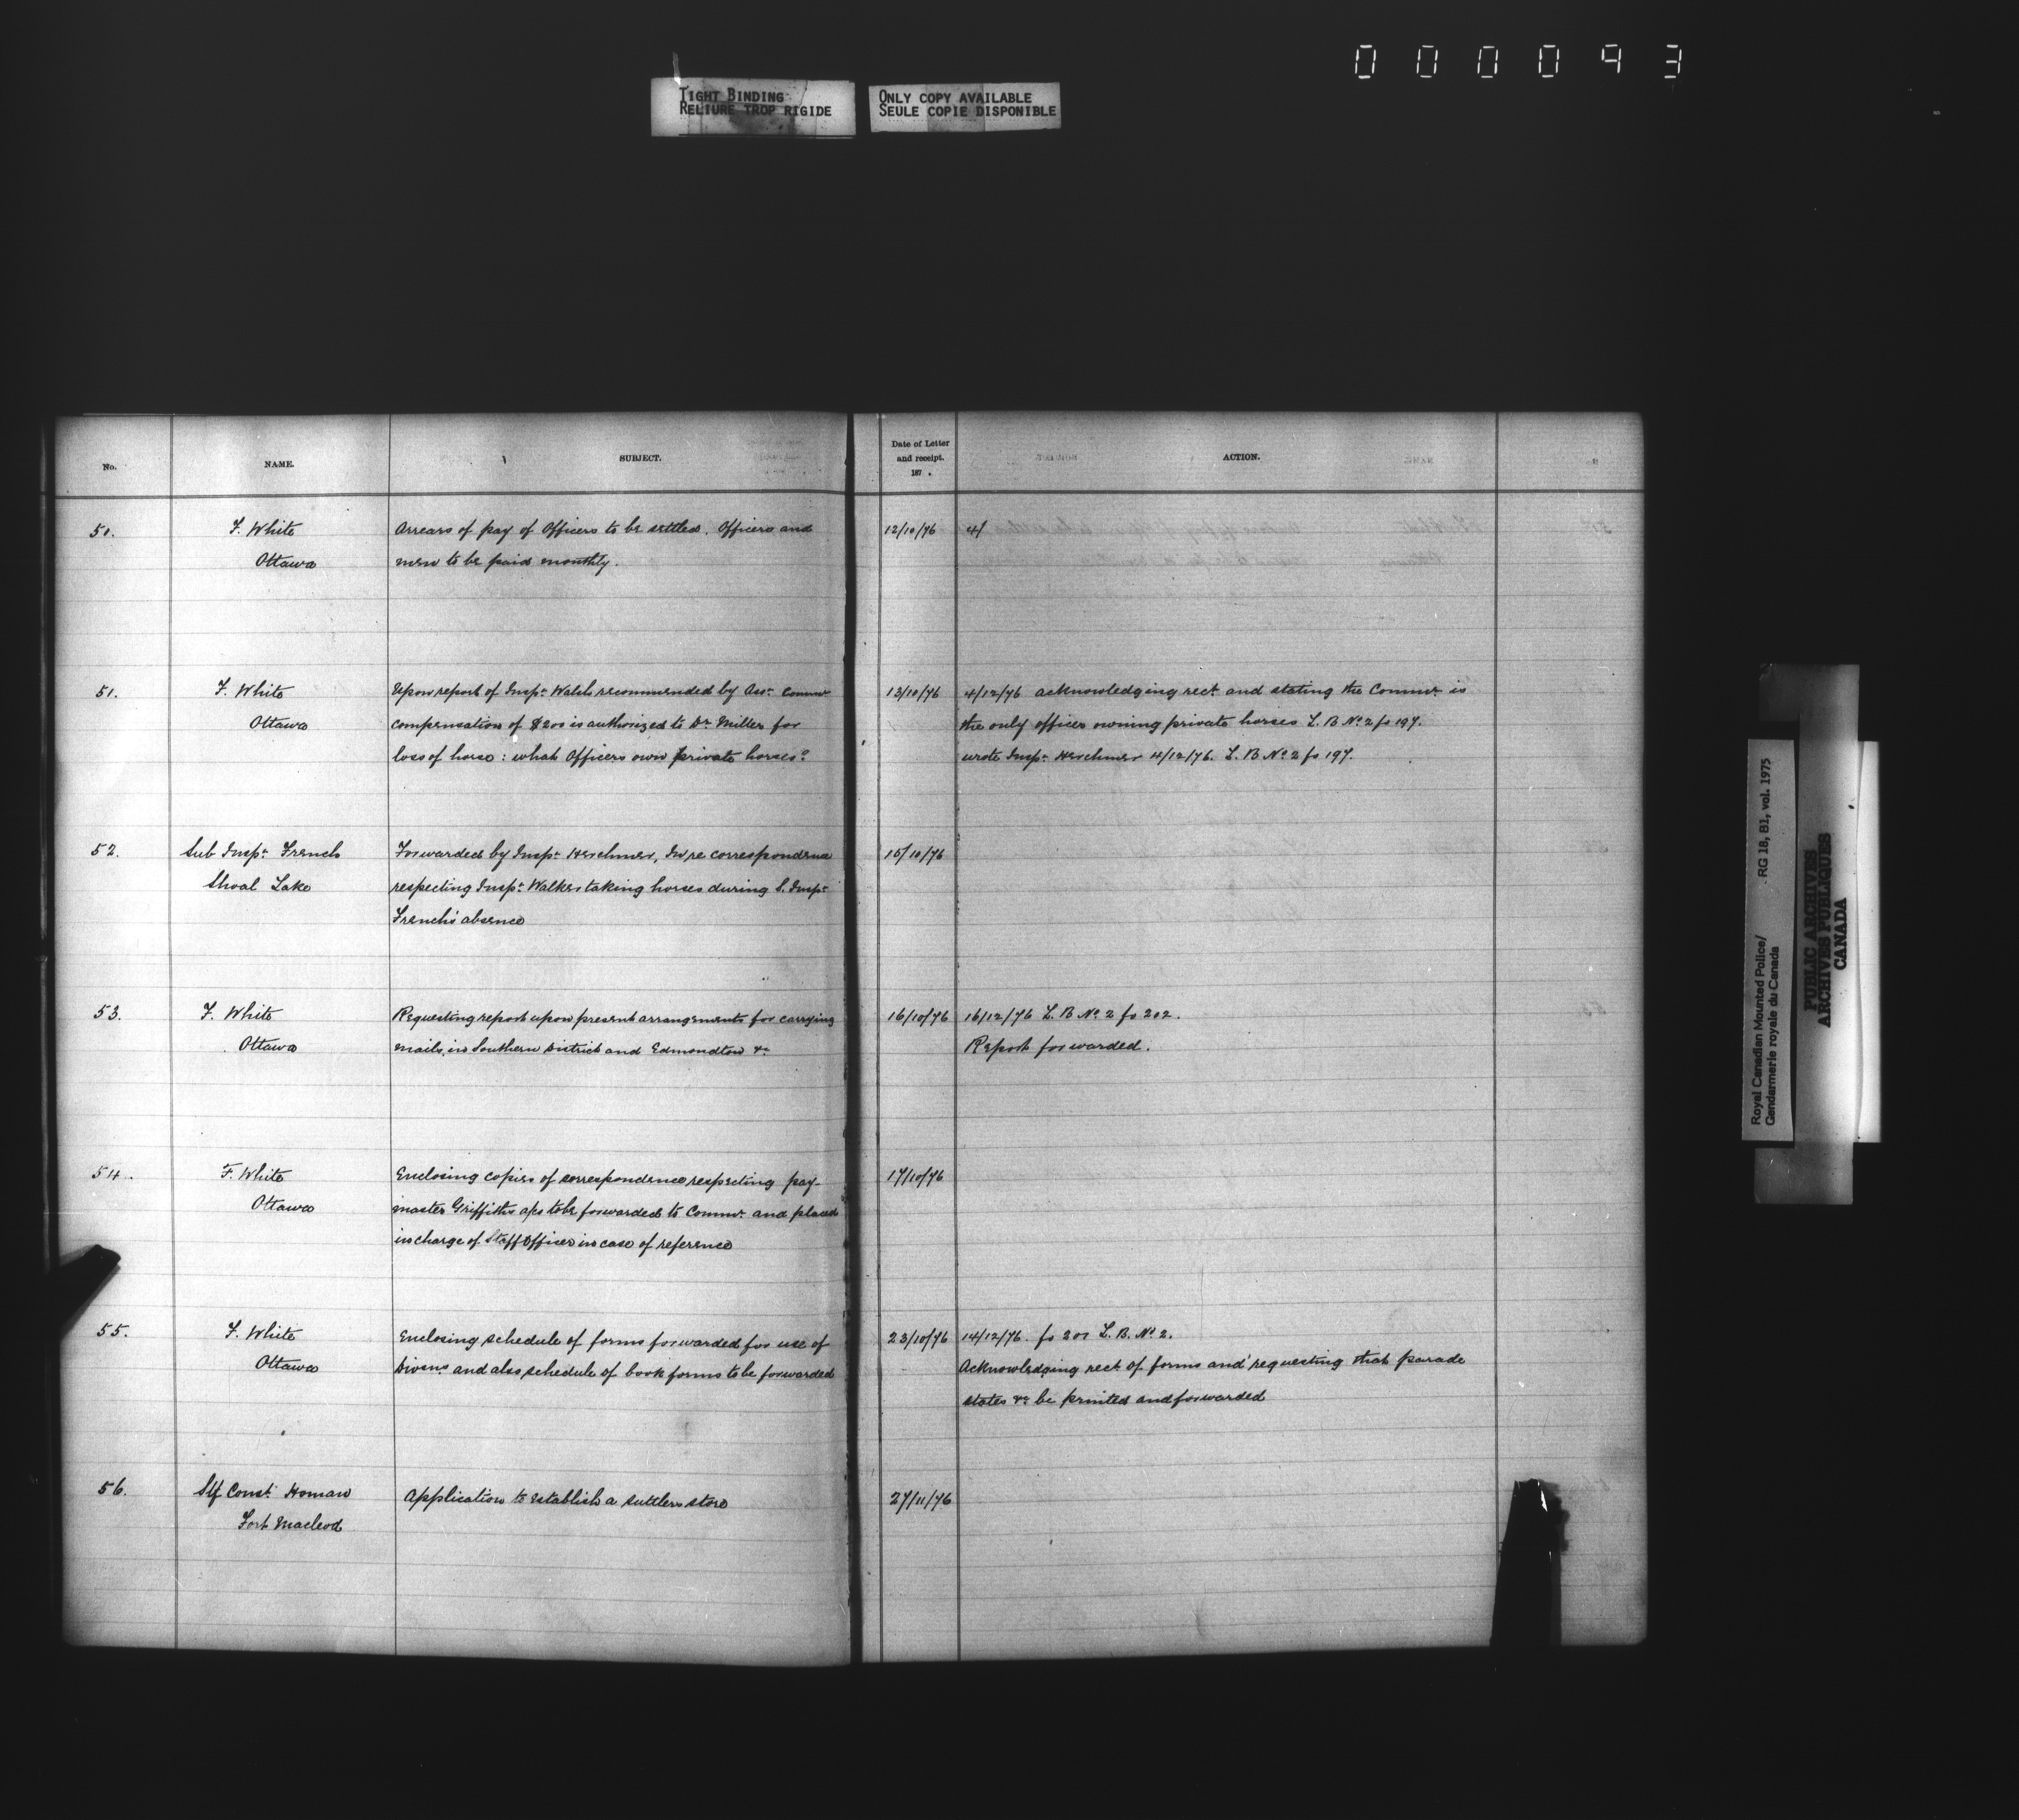 000093
TIGHT BINDING
RELIURE TROP RIGIDE
ONLY COPY AVAILABLE
SEULE COPIE DISPONIBLE
No.
NAME.
SUBJECT.
Date of Letter
and receipt.
187 .
ACTION.
50. F. White Arrears of pay of Officers to be settled. Officers and 12/10/76 4/
Ottawa men to be paid monthly.
51. F. White Upon report of Inspr. Walsh recommended by Asst. Commr 13/10/76 4/12/76 acknowledging rect. and stating the Commr. is
Ottawa compensation of $200 is authorized to Dr. Miller for the only officer owning private horses L. B No. 2 fo 197.
loss of horse: what Officers own private horses? wrote Inspr. Herchmer 4/12/76. L. B No. 2 fo 197.
52. Sub Inspr. French Forwarded by Inspr. Herchmer, In re correspondence 15/10/76
Shoal Lake respecting Inspr. Walker taking horses during S. Inspr
French's absence
53. F. White Requesting report upon present arrangements for carrying 16/10/76 16/12/76 L. B No. 2 fo 202.
Ottawa mails, in Southern District and Edmondton &c Report forwarded.
54. F. White Enclosing copies of correspondence respecting pay- 17/10/76
Ottawa master Griffiths a/cs to be forwarded to Commr. and placed
in charge of Staff Officer in case of reference
55. F. White Enclosing schedule of forms forwarded for use of 23/10/76 14/12/76. fo 201 L. B. No. 2.
Ottawa Divsns. and also schedule of book forms to be forwarded Acknowledging rect. of forms and requesting that parade
states &c be printed and forwarded
56. Stf Const. Homan Application to establish a sutlers store 27/11/76
Fort Macleod
Royal Canadian Mounted Police/
Gendarmerie royale du Canada
RG 18, B1, vol. 1975
PUBLIC ARCHIVES
ARCHIVES PUBLIQUES
CANADA